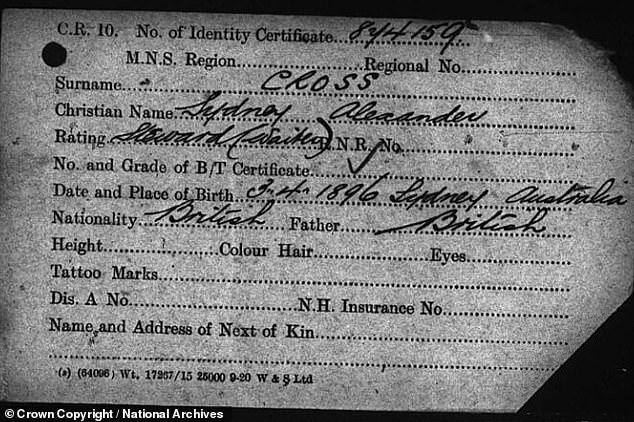 C.R. 10. No. of Identity Certificate...844159
M.N.S. Region.................... Regional No..................
Surname CROSS
Christian Name Sydney Alexander
Rating Steward (Waiter) N.R. No.
No. and Grade of B/T Certificate
Date and Place of Birth 3-4-1896 Sydney Australia
Nationality British Father British
Height.................... Colour Hair.................... Eyes....................
Tattoo Marks
Dis. A No. N.H. Insurance No.
Name and Address of Next of Kin
(s) (64096) Wt. 17267/15 25000 9-20 W & S Ltd
© Crown Copyright / National Archives